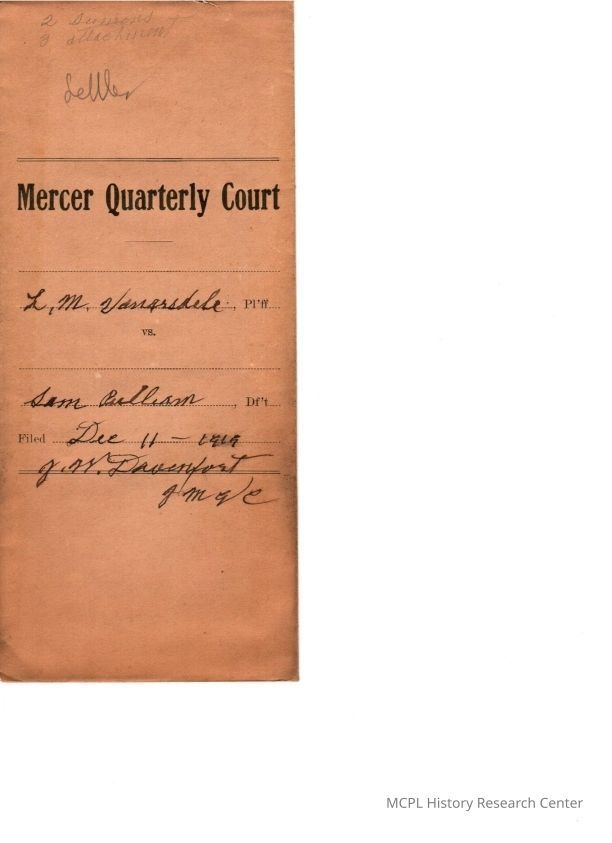 2 Sumons +
3 attachment
Mercer Quarterly Court
L, M. Vanarsdele , Pl'ff
vs.
Sam Pulliam , Df't
Filed Dec 11 – 1919
J. W. Davenport
J M Q C
MCPL History Research Center